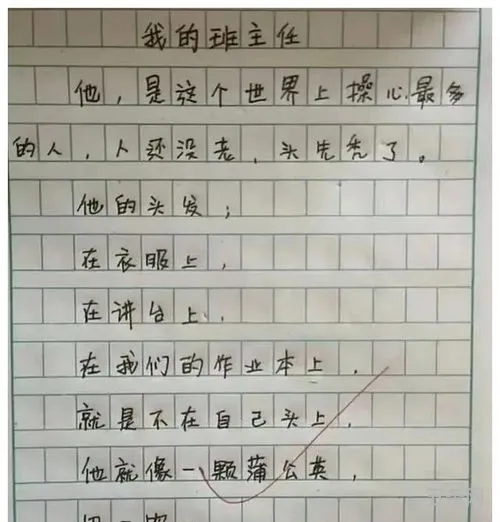 我的班主任
他，是这个世界上操心最多
的人，人还没老，头先秃了。
他的头发；
在衣服上，
在讲台上，
在我们的作业本上，
就是不在自己头上，
他就像一颗蒲公英，